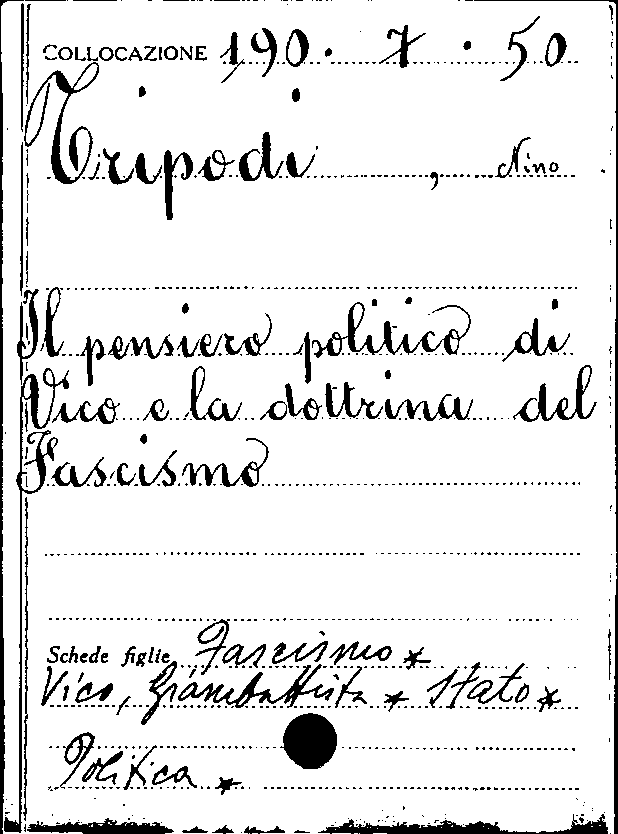 COLLOCAZIONE 190. 7. 50
Tripodi, Nino
Il pensiero politico di
Vico e la dottrina del
Fascismo
Schede figlie Fascismo *
Vico, Giambattista * Stato *
Politica *